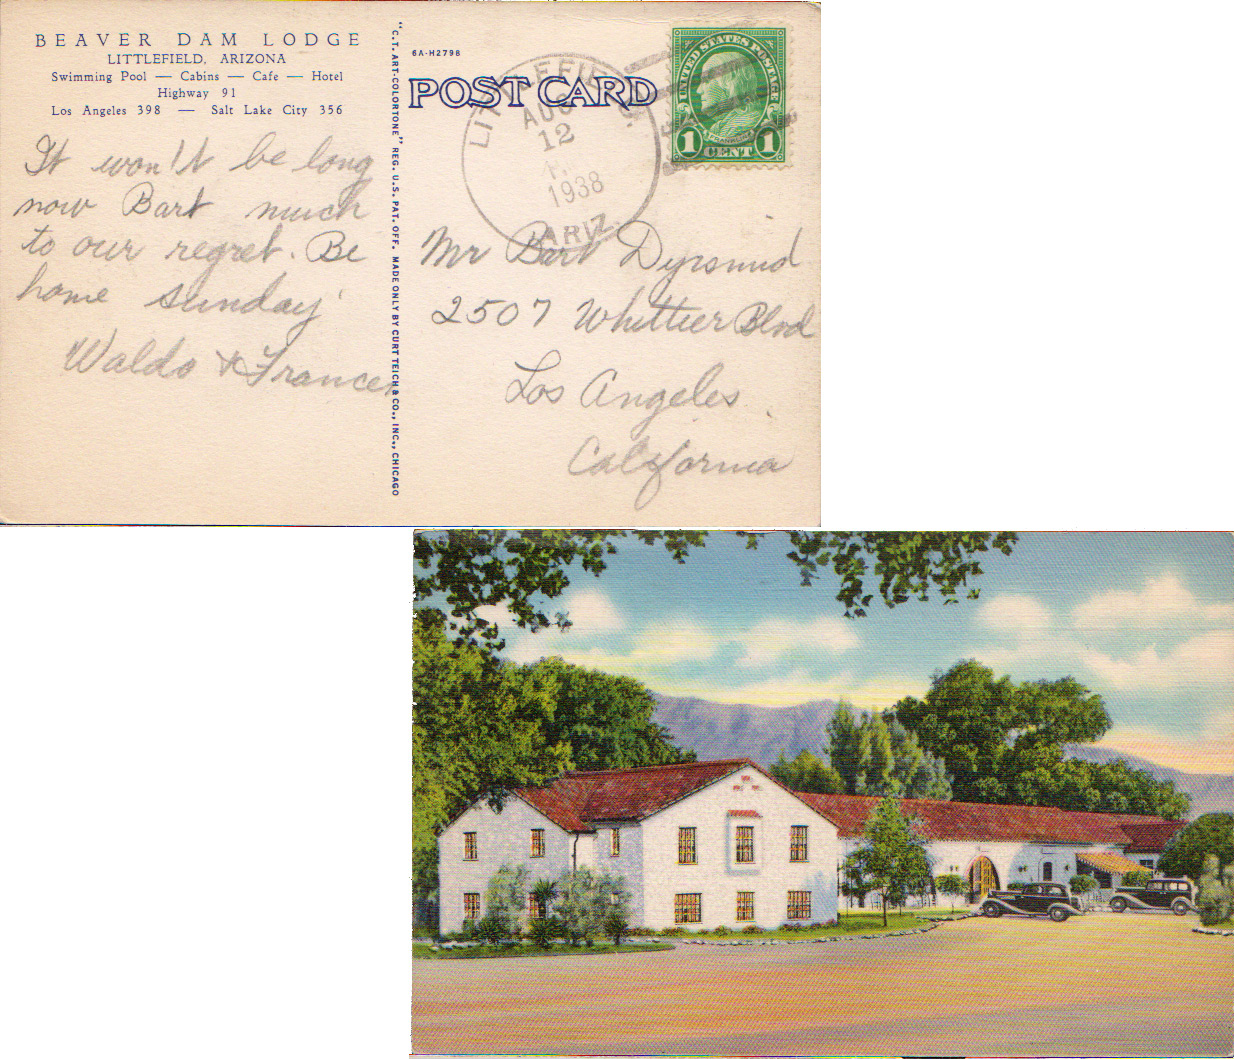 BEAVER DAM LODGE
LITTLEFIELD, ARIZONA
Swimming Pool — Cabins — Cafe — Hotel
Highway 91
Los Angeles 398 — Salt Lake City 356
It won't be long
now Bart much
to our regret. Be
home Sunday
Waldo & Frances
"C.T. ART-COLORTONE" REG. U.S. PAT. OFF. MADE ONLY BY CURT TEICH & CO., INC., CHICAGO
6A-H2798
POST CARD
LITTLEFIELD.
AUG
12
1938
ARIZ.
UNITED STATES POSTAGE
FRANKLIN
1 CENT 1
Mr Bart
2507 Whittier Blvd
Los Angeles
California